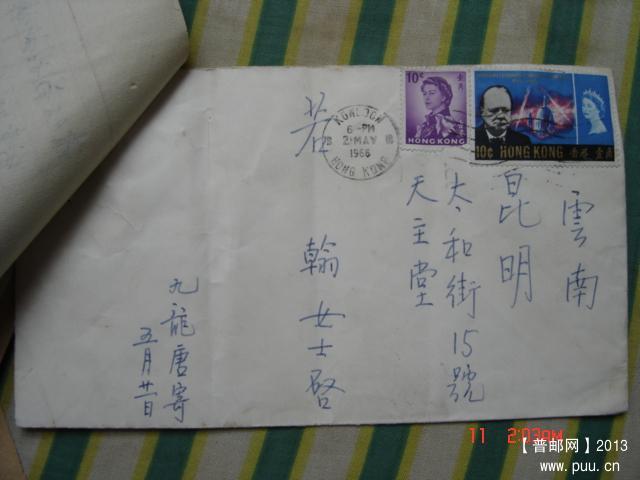 雲南
昆明
太和街15號
天主堂
若翰女士啓
九龍唐寄
五月廿日
KOWLOON
6-PM
2 MAY
1966
HONG KONG
10¢
HONG KONG
10¢ HONG KONG 香港 壹角
11 2:03PM
【普邮网】2013
www.puu.cn